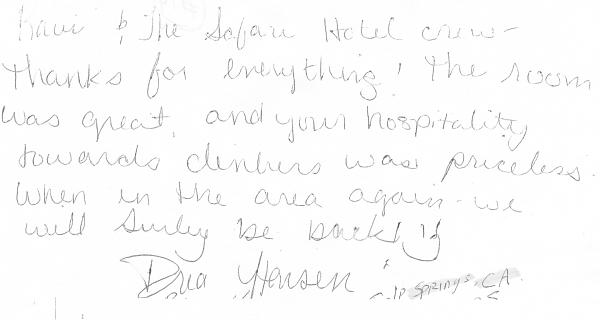 Kavi & The Safari Hotel crew-
thanks for everything! The room
was great, and your hospitality
towards climbers was priceless.
When in the area again - we
will surley be back!
Drea Hansen
SPRINGS, CA.